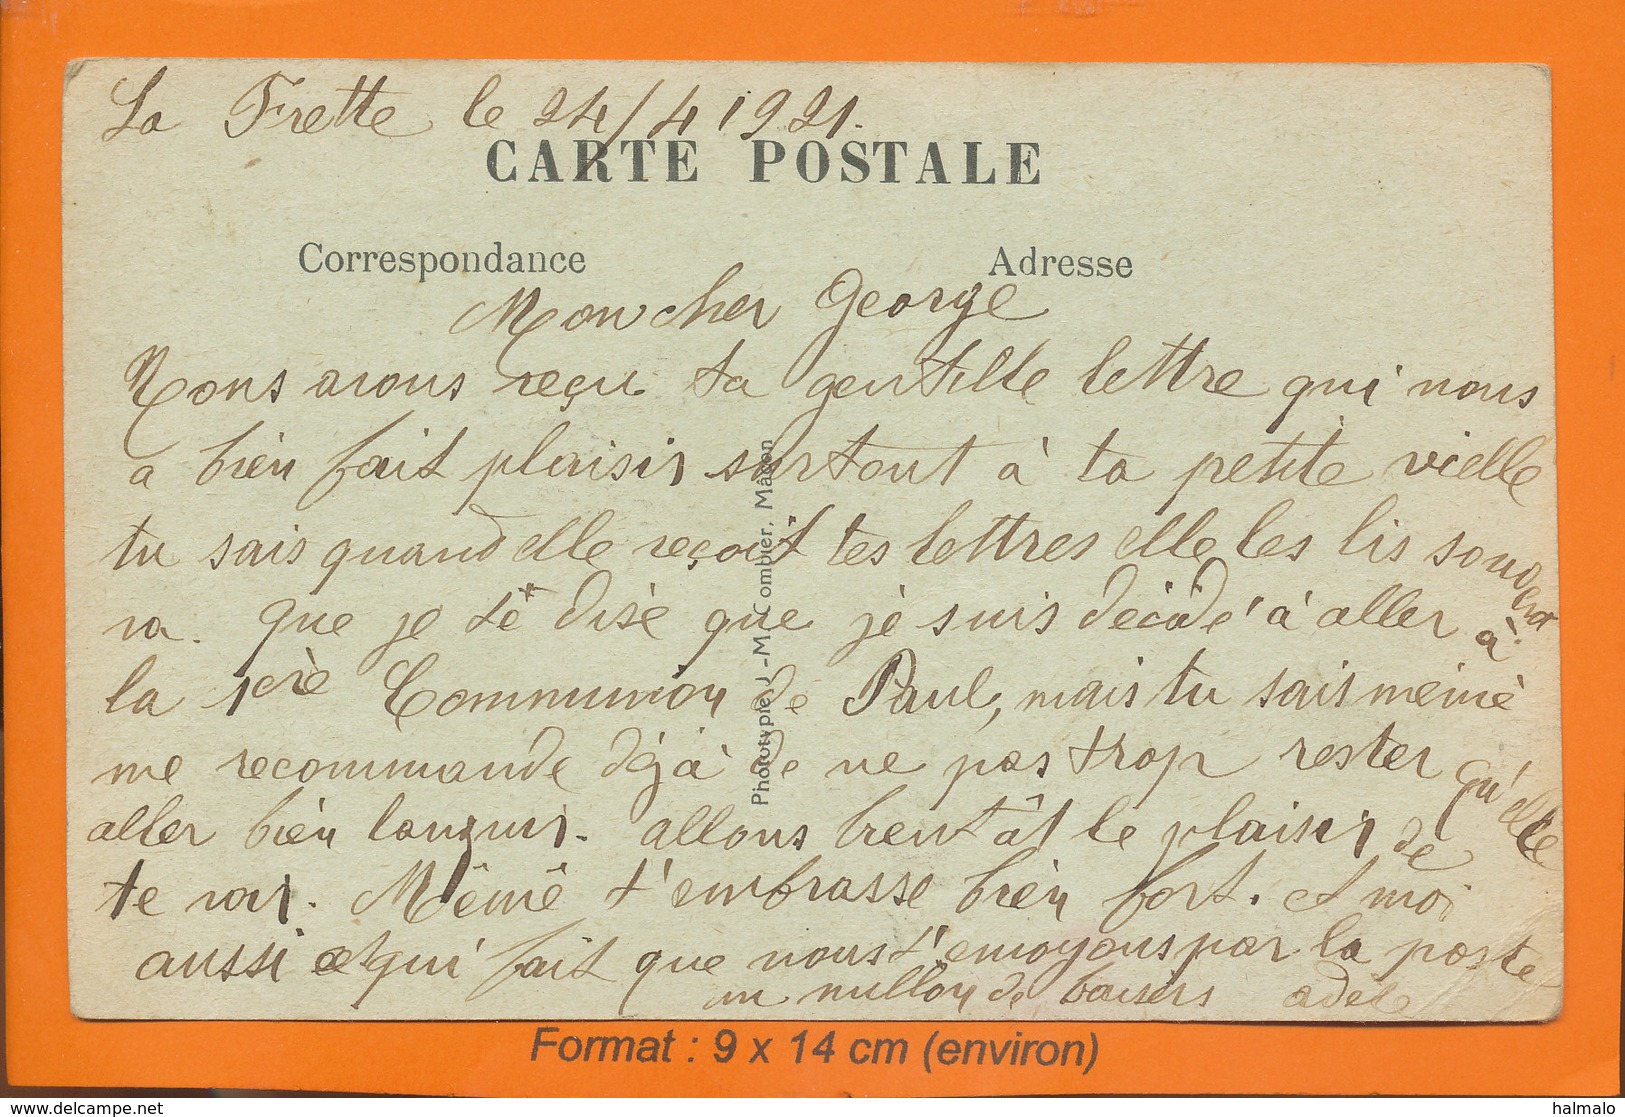 La Frette le 24/4 1921.
CARTE POSTALE
Correspondance
Adresse
Mon cher George
Nous avons reçu ta gentille lettre qui nous
a bien fait plaisir surtout à ta petite vielle
tu sais quand elle reçoit tes lettres elle les lis souvent
va. que je te dise que je suis décidé à aller à
la 1ère Communion de Paul, mais tu sais mémé
me recommande déjà de ne pas trop rester qu'elle
aller bien languir. allons bientôt le plaisir de
te voir. Mémé t'embrasse bien fort. et moi
aussi et qui fait que nous t'envoyons par la poste
un million de baisers adele
Phototypie J.-M. Combier, Mâcon
Format : 9 x 14 cm (environ)
www.delcampe.net
halmalo